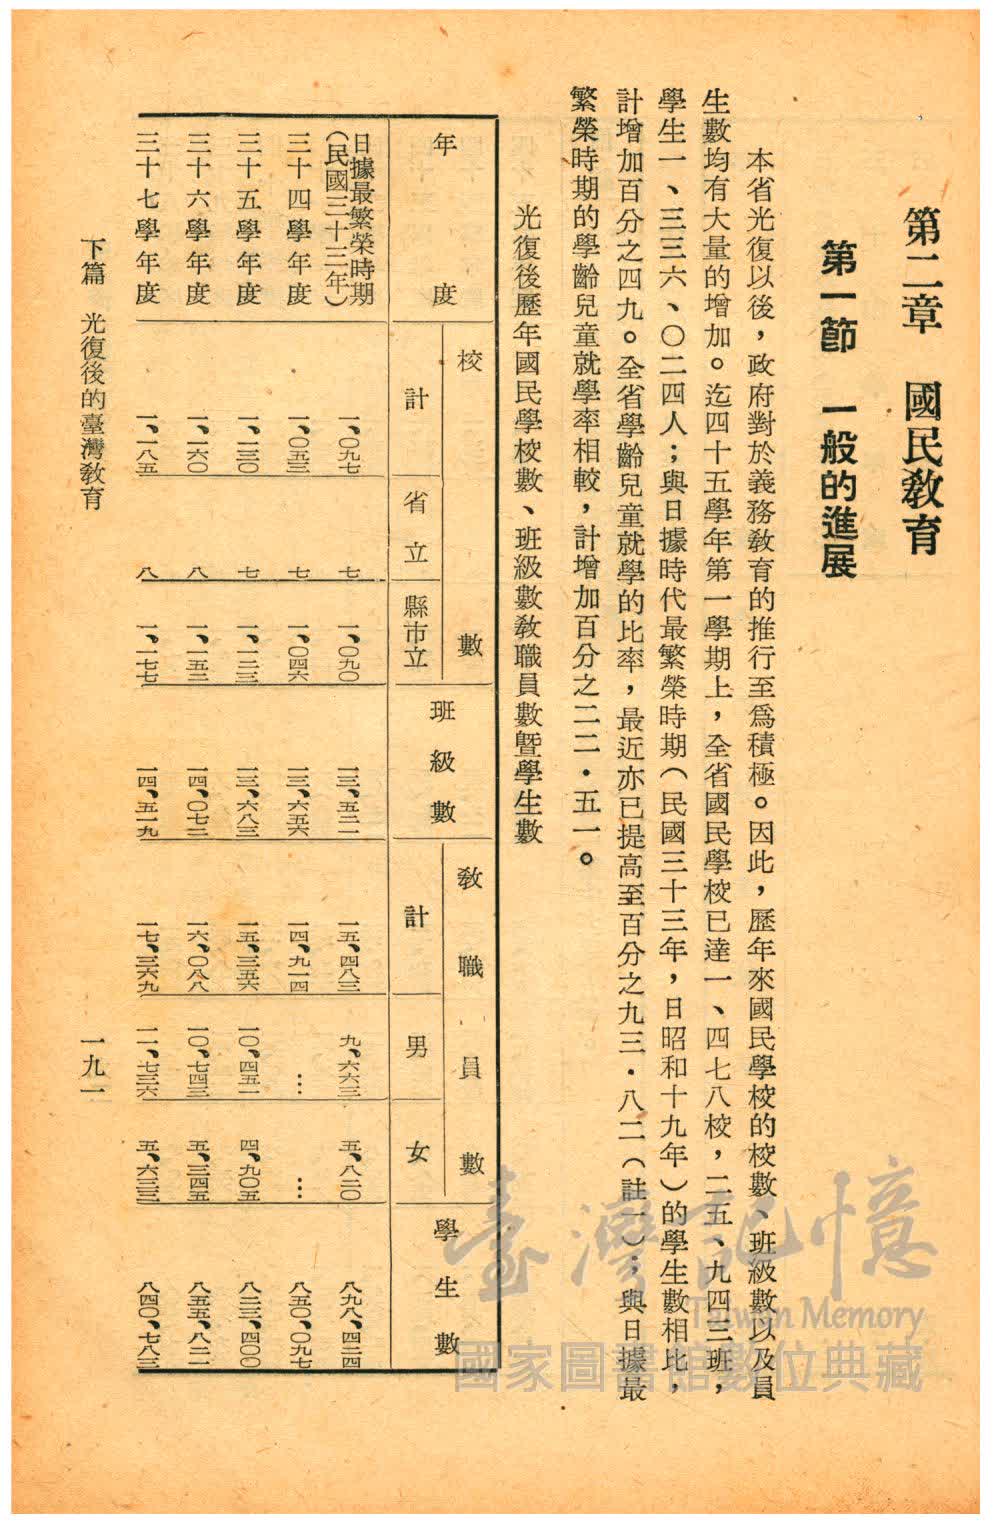 第二章　國民教育
第一節　一般的進展
本省光復以後，政府對於義務教育的推行至爲積極。因此，歷年來國民學校的校數、班級數以及員
生數均有大量的增加。迄四十五學年第一學期上，全省國民學校已達一、四七八校，二五、九四三班，
學生一、三三六、〇二四人；與日據時代最繁榮時期（民國三十三年，日昭和十九年）的學生數相比，
計增加百分之四九。全省學齡兒童就學的比率，最近亦已提高至百分之九三・八二（註一）；與日據最
繁榮時期的學齡兒童就學率相較，計增加百分之二二・五一。
光復後歷年國民學校數、班級數教職員數曁學生數
年度　校數　班級數　教職員數　學生數
計　省立　縣市立　計　男　女
日據最繁榮時期（民國三十三年）　一、〇九七　七　一、〇九〇　一三、五二一　一五、四八三　九、六六三　五、八二〇　八九八、四二四
三十四學年度　一、〇五三　七　一、〇四六　一三、六五六　一四、九一四　…　…　八五〇、〇九七
三十五學年度　一、一三〇　七　一、一二三　一三、六八三　一五、三五六　一〇、四五一　四、九〇五　八二三、四〇〇
三十六學年度　一、一六〇　八　一、一五二　一四、〇七二　一六、〇八八　一〇、七四三　五、三四五　八五五、八二一
三十七學年度　一、一八五　八　一、一七七　一四、五一九　一七、三六九　一一、七三六　五、六三三　八四〇、七八三
下篇　光復後的臺灣教育　一九一
臺灣記憶
Taiwan Memory
國家圖書館數位典藏